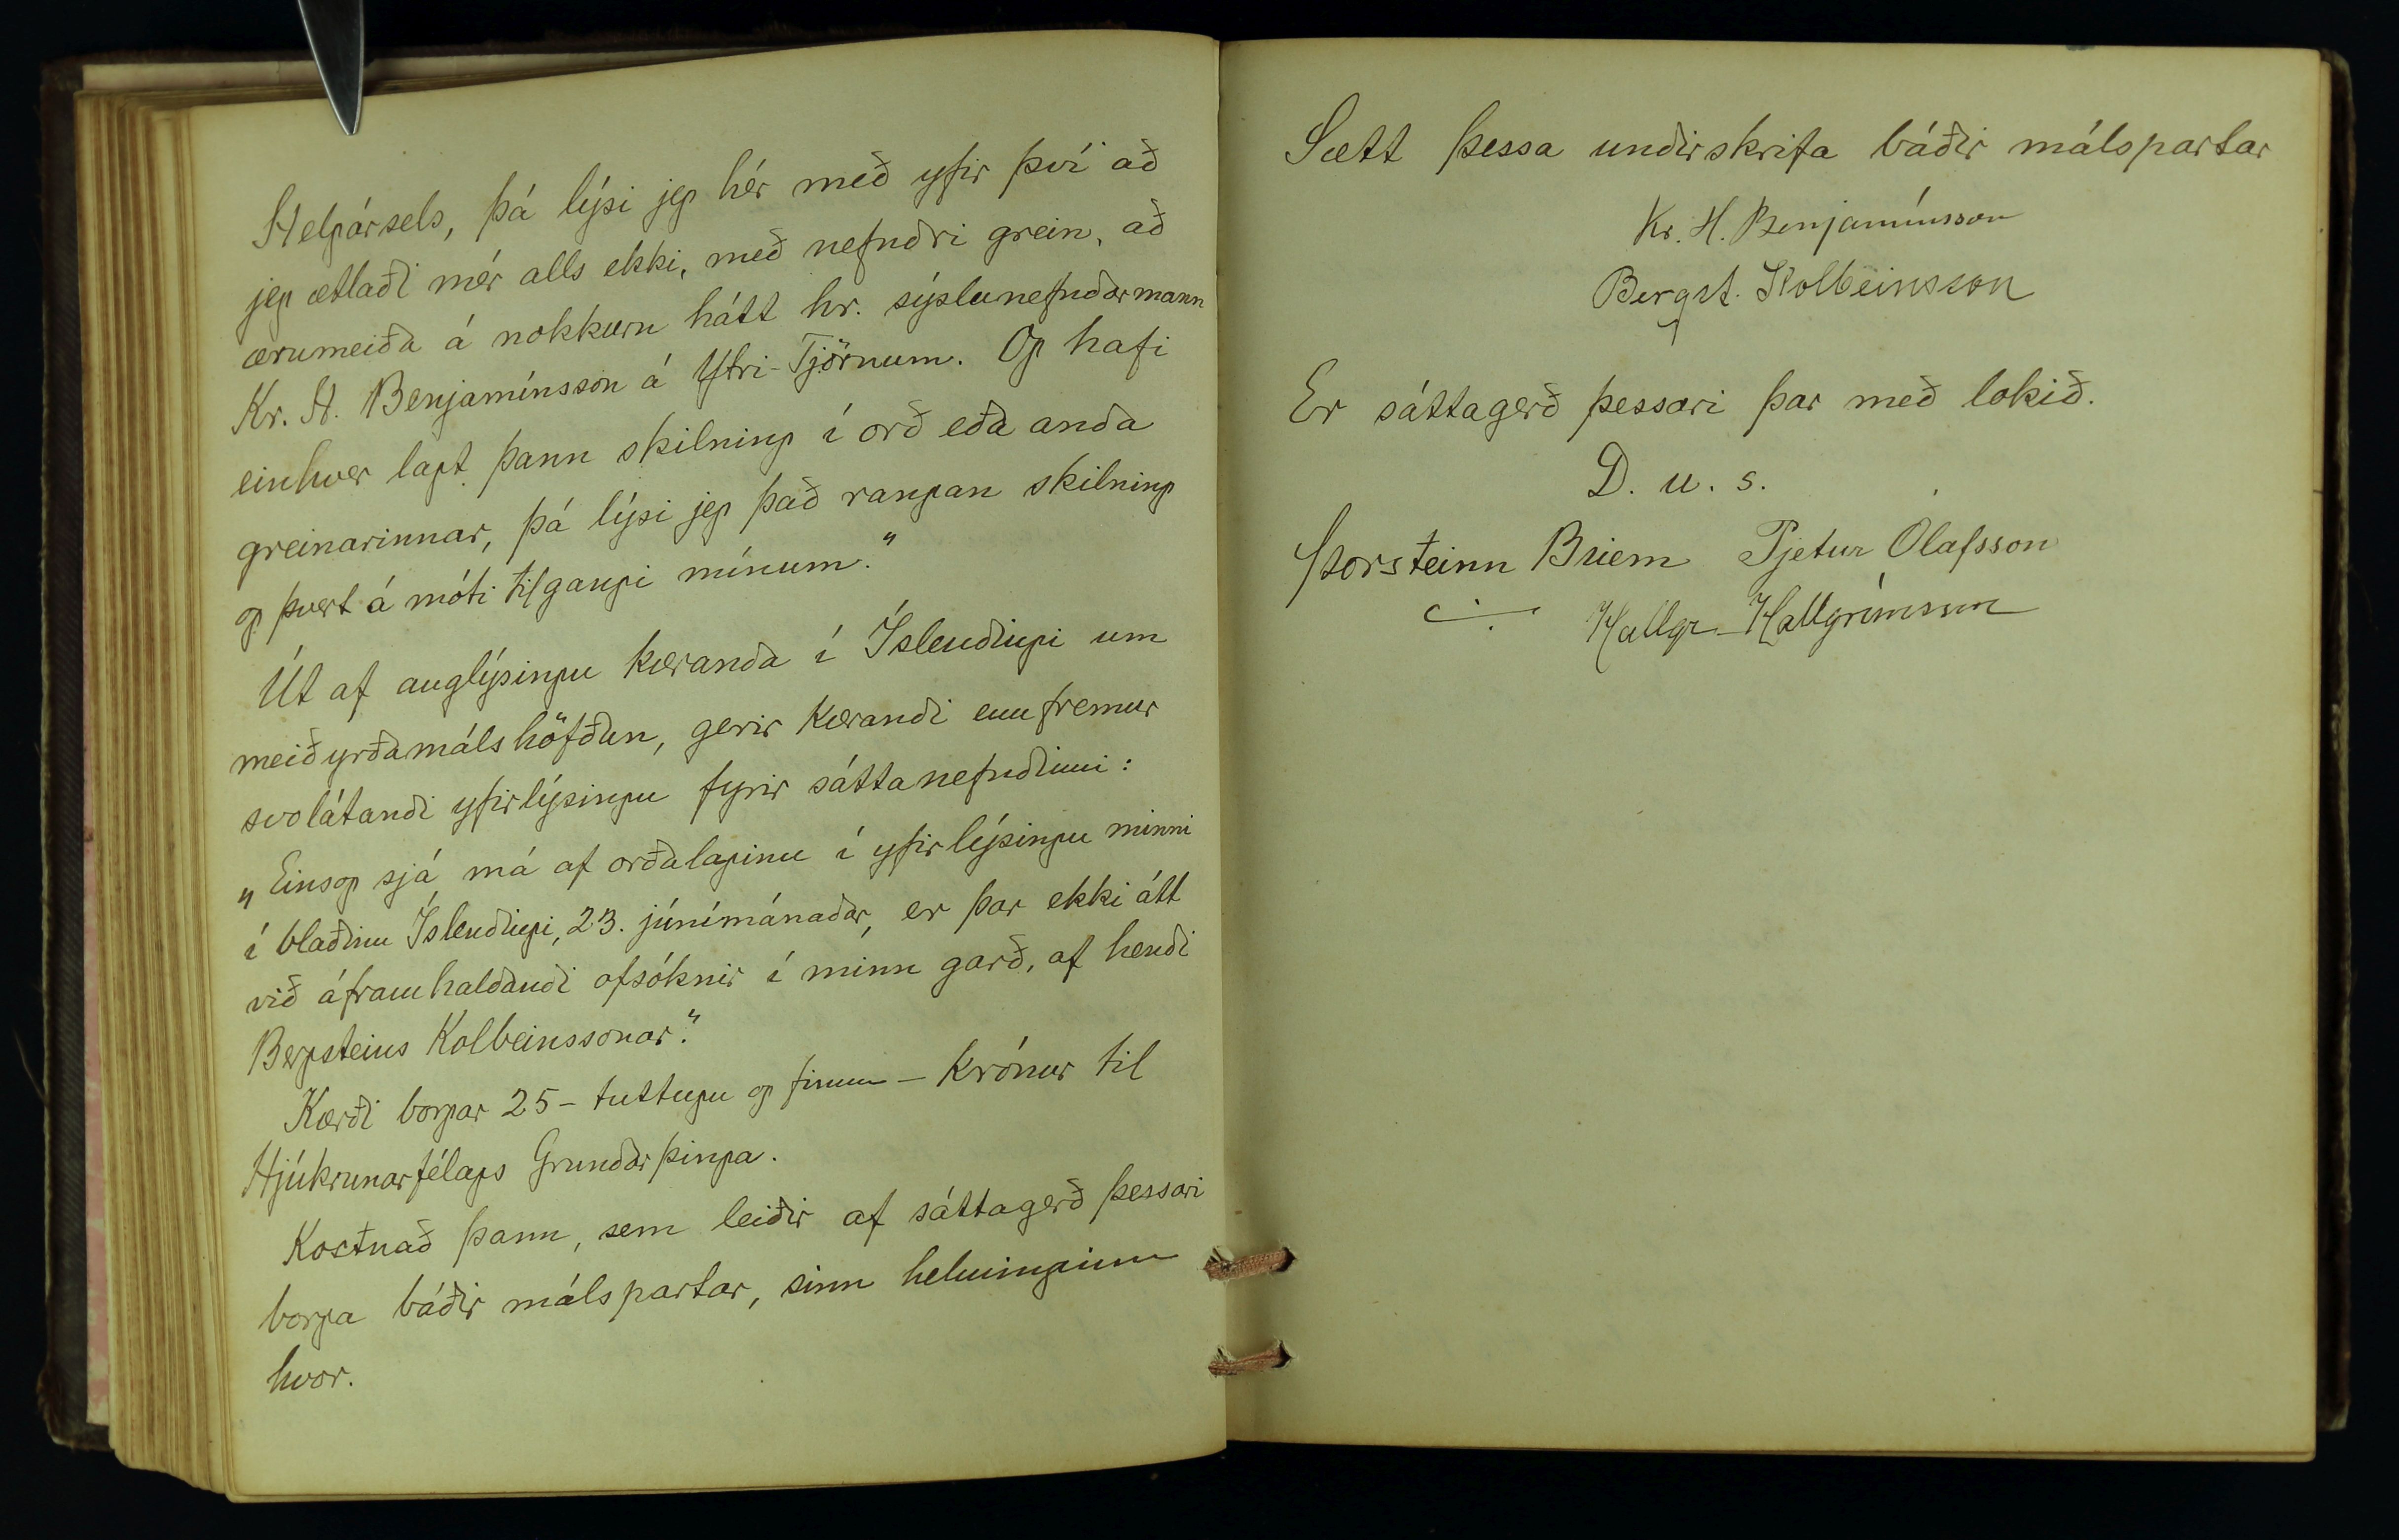 Helgársels, þá lýsi jeg hér með yfir því að
jeg ætlaði mér alls ekki, með nefndri grein, að
ærumeiða á nokkurn hátt hr. sýslunefndarmann
Kr. H. Benjamínsson á Ytri-Tjörnum. Og hafi
einhver lagt þann skilning í orð eða anda
greinarinnar, þá lýsi jeg það rangan skilning
og þvert á móti tilgangi mínum."
Út af auglýsingu kæranda í Íslendingi um
meiðyrðamálshöfðun, gerir kærandi ennfremur
svolátandi yfirlýsingu fyrir sáttanefndinni:
„Einsog sjá má af orðalaginu í yfirlýsingu minni
í blaðinu Íslendingi, 23. júnímánaðar, er þar ekki átt
við áframhaldandi ofsóknir í minn garð, af hendi
Bergsteins Kolbeinssonar."
Kærði borgar 25 - tuttugu og fimm - krónur til
Hjúkrunarfélags Grundarþinga.
Kostnað þann, sem leiðir af sáttagerð þessari
borga báðir málspartar, sinn helminginn
hvor.
Sætt þessa undirskrifa báðir málspartar
Kr. H. Benjamínsson
Bergst. Kolbeinsson
Er sáttagerð þessari þar með lokið.
D. u. s.
Þorsteinn Briem Pjetur Ólafsson
Hallgr. Hallgrímsson